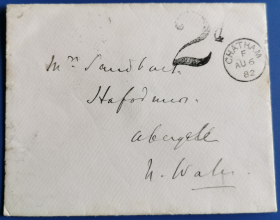 2d
CHATHAM
F
AU 6
82
Mrs Sandbach
Hafodunos
Abergele
N. Wales